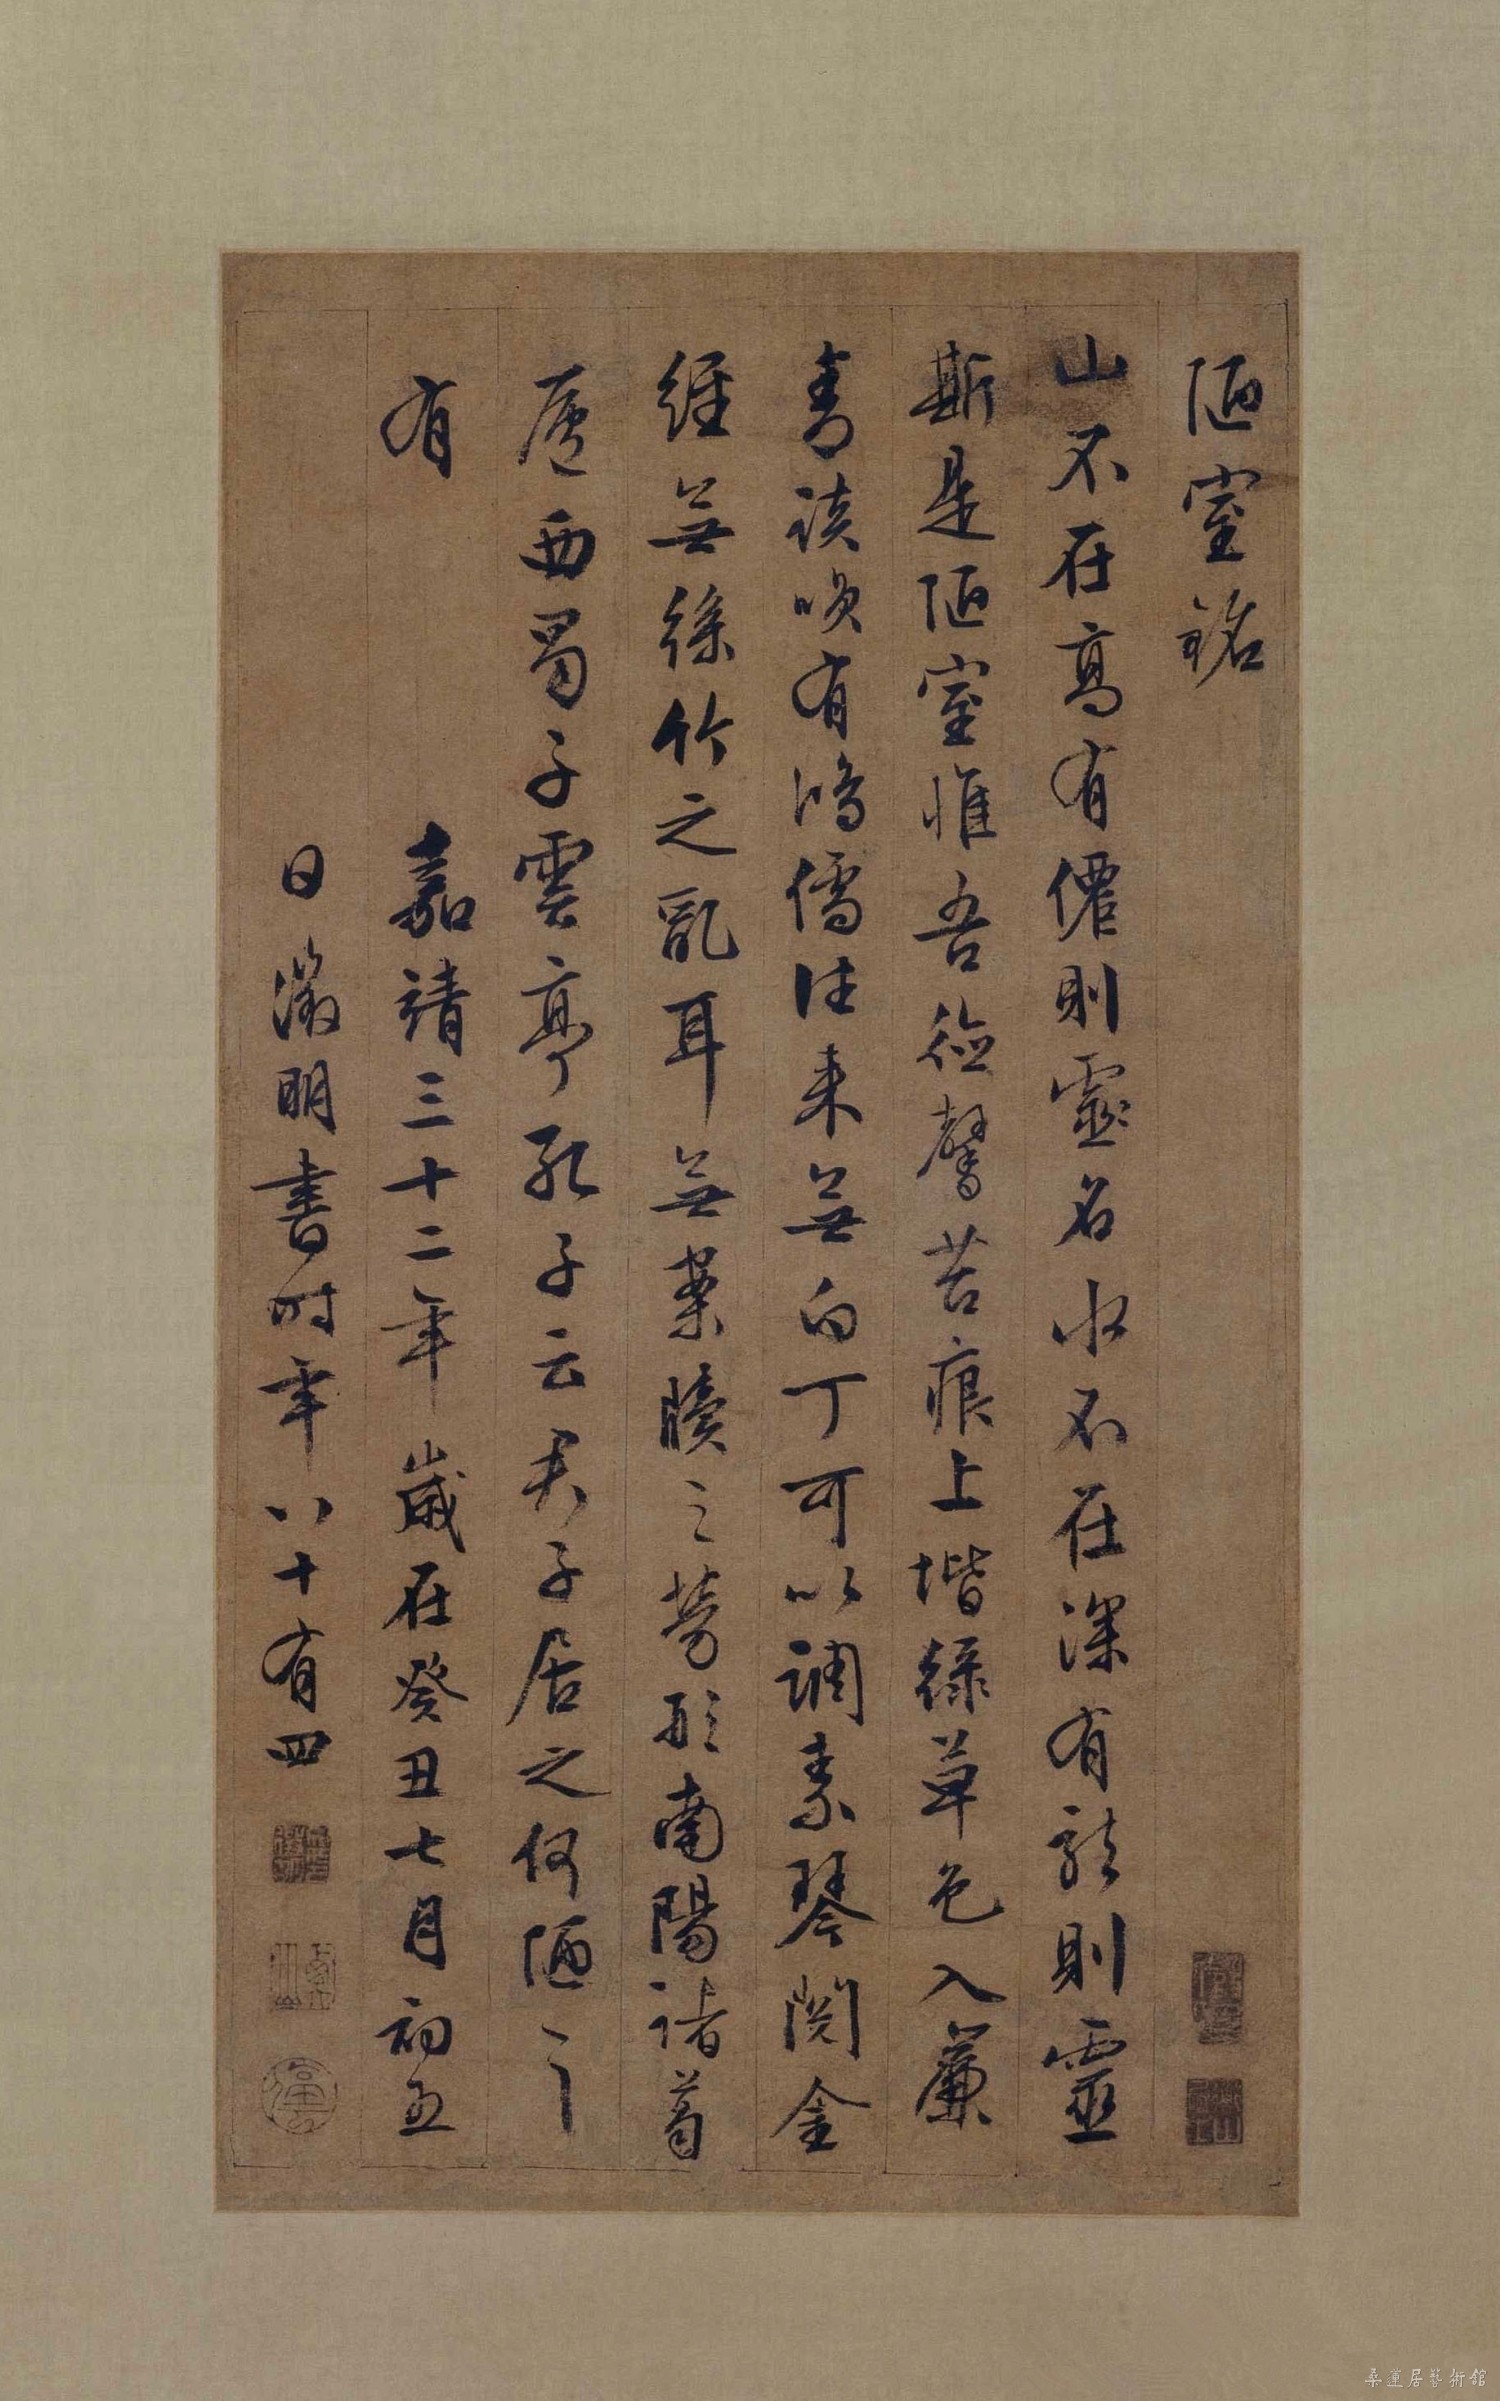 陋室銘
山不在高有僊則靈名水不在深有龍則靈
斯是陋室惟吾德馨苔痕上堦綠草色入簾
青談咲有鴻儒往来無白丁可以調素琴閱金
經無絲竹之亂耳無案牘之勞形南陽諸葛
廬西蜀子雲亭孔子云君子居之何陋之
有
嘉靖三十二年歲在癸丑七月初五
日徵明書时年八十有四
桑蓮居藝術館